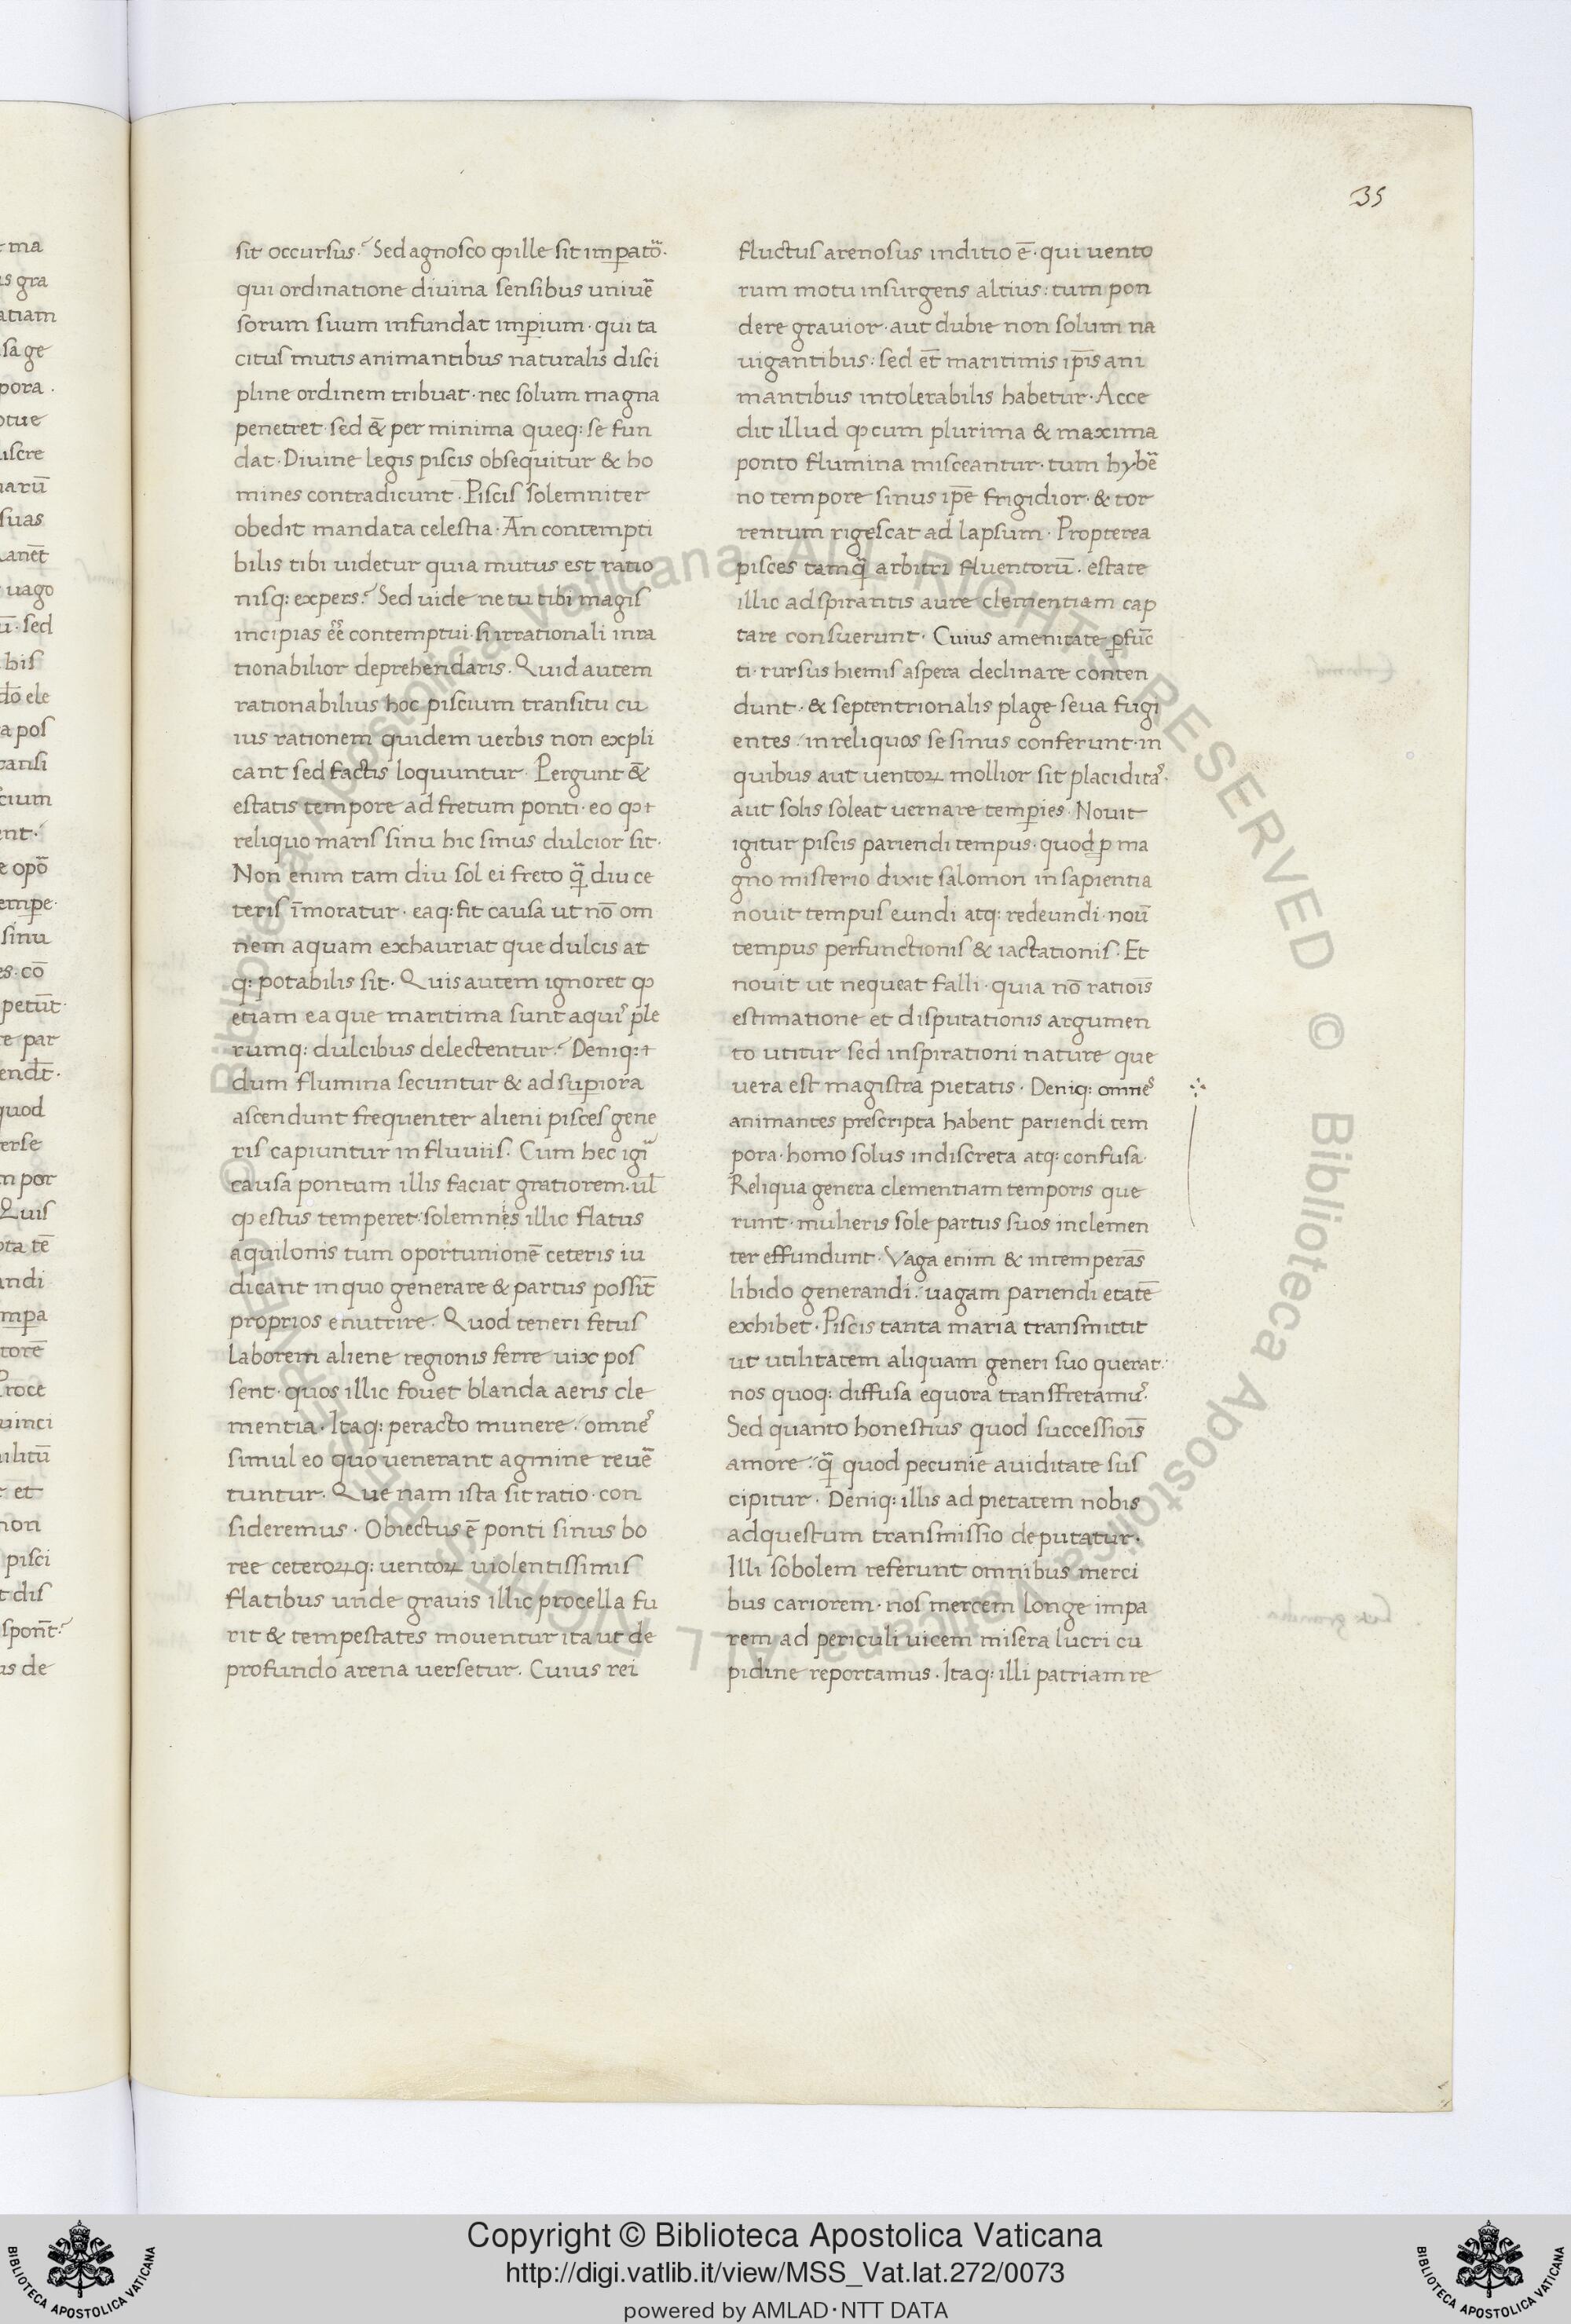 35
sit occursus? Sed agnosco ꝙ ille sit imꝑatõ·
qui ordinatione divina sensibus univẽ
sorum suum infundat imꝑium· qui ta
citus mutis animantibus naturalis disci
pline ordinem tribuat· nec solum magna
penetret· sed &̄ per minima queq: se fun
dat· Divine legis piscis obsequitur & ho
mines contradicunt· Piscis solemniter
obedit mandata celestia· An contempti
bilis tibi uidetur quia mutus est ratio
nisq: expers? Sed uide ne tu tibi magis
incipias ēē contemptui· si irrationali inra
tionabilior deprehendaris· Quid autem
rationabilius hoc piscium transitu cu
ius rationem quidem uerbis non expli
cant sed factis loquuntur· Pergunt &̄
estatis tempore ad fretum ponti· eo ꝙ +
reliquo maris sinu hic sinus dulcior sit·
Non enim tam diu sol ei freto q̃ diu ce
teris īmoratur· eaq: fit causa ut nō om
nem aquam exhauriat que dulcis at
q: potabilis sit· Quis autem ignoret ꝙ
etiam ea que maritima sunt aquis ple
rumq: dulcibus delectentur? Deniq: +
dum flumina secuntur & ad suꝑiora
ascendunt frequenter alieni pisces gene
ris capiuntur in fluuiis· Cum hec igĩ
causa pontum illis faciat gratiorem· ul̄
ꝙ estus temperet· solemnes illic flatus
aquilonis tum oportunionē ceteris iu
dicant in quo generare & partus possīt
proprios enutrire· Quod teneri fetus
laborem aliene regionis ferre uix pos
sent· quos illic fovet blanda aeris cle
mentia· Itaq: peracto munere· omnes
simul eo quo venerant agmine reuẽ
tuntur· Que nam ista sit ratio· con
sideremus· Obiectus ē ponti sinus bo
ree ceteroꝝq: uentoꝝ violentissimis
flatibus unde gravis illic procella fu
rit & tempestates moventur ita ut de
profundo arena versetur· Cuius rei
fluctus arenosus inditio ē· qui vento
rum motu insurgens altius: tum pon
dere gravior· aut dubie non solum na
vigantibus: sed et̄ maritimis ip̄is ani
mantibus intolerabilis habetur· Acce
dit illud ꝙ cum plurima & maxima
ponto flumina misceantur· tum hybẽ
no tempore sinus ip̄e frigidior· & tor
rentum rigescat ad lapsum· Propterea
pisces tamq̃ arbitri fluentorū· estate
illic adspirantis aure clementiam cap
tare consuerunt· Cuius amenitate ꝑfūc
ti· rursus hiemis aspera declinare conten
dunt· & septentrionalis plage seva fugi
entes· in reliquos se sinus conferunt· in
quibus aut uentoꝝ mollior sit placiditas·
aut solis soleat vernare temꝑies· Novit
igitur piscis pariendi tempus· quod ꝓ ma
gno misterio dixit salomon in sapientia
novit tempus eundi atq: redeundi· nouĩ
tempus perfunctionis & iactationis· Et
novit ut nequeat falli· quia nō ratioīs
estimatione et disputationis argumen
to utitur sed inspirationi nature que
vera est magistra pietatis· Deniq: omnes
animantes prescripta habent pariendi tem
pora· homo solus indiscreta atq: confusa·
Reliqua genera clementiam temporis que
runt· mulieris sole partus suos inclemen
ter effundunt· Vaga enim & intemperās
libido generandi· uagam pariendi etatē
exhibet· Piscis tanta maria transmittit
ut utilitatem aliquam generi suo querat·
nos quoq: diffusa equora transfretamus·
Sed quanto honestius quod successioīs
amore· q̃ quod pecunie aviditate sus
cipitur· Deniq: illis ad pietatem nobis
ad questum transmissio deputatur·
Illi sobolem referunt omnibus merci
bus cariorem· nos mercem longe impa
rem ad periculi uicem misera lucri cu
pidine reportamus· Itaq: illi patriam re
Copyright © Biblioteca Apostolica Vaticana
http://digi.vatlib.it/view/MSS_Vat.lat.272/0073
powered by AMLAD·NTT DATA